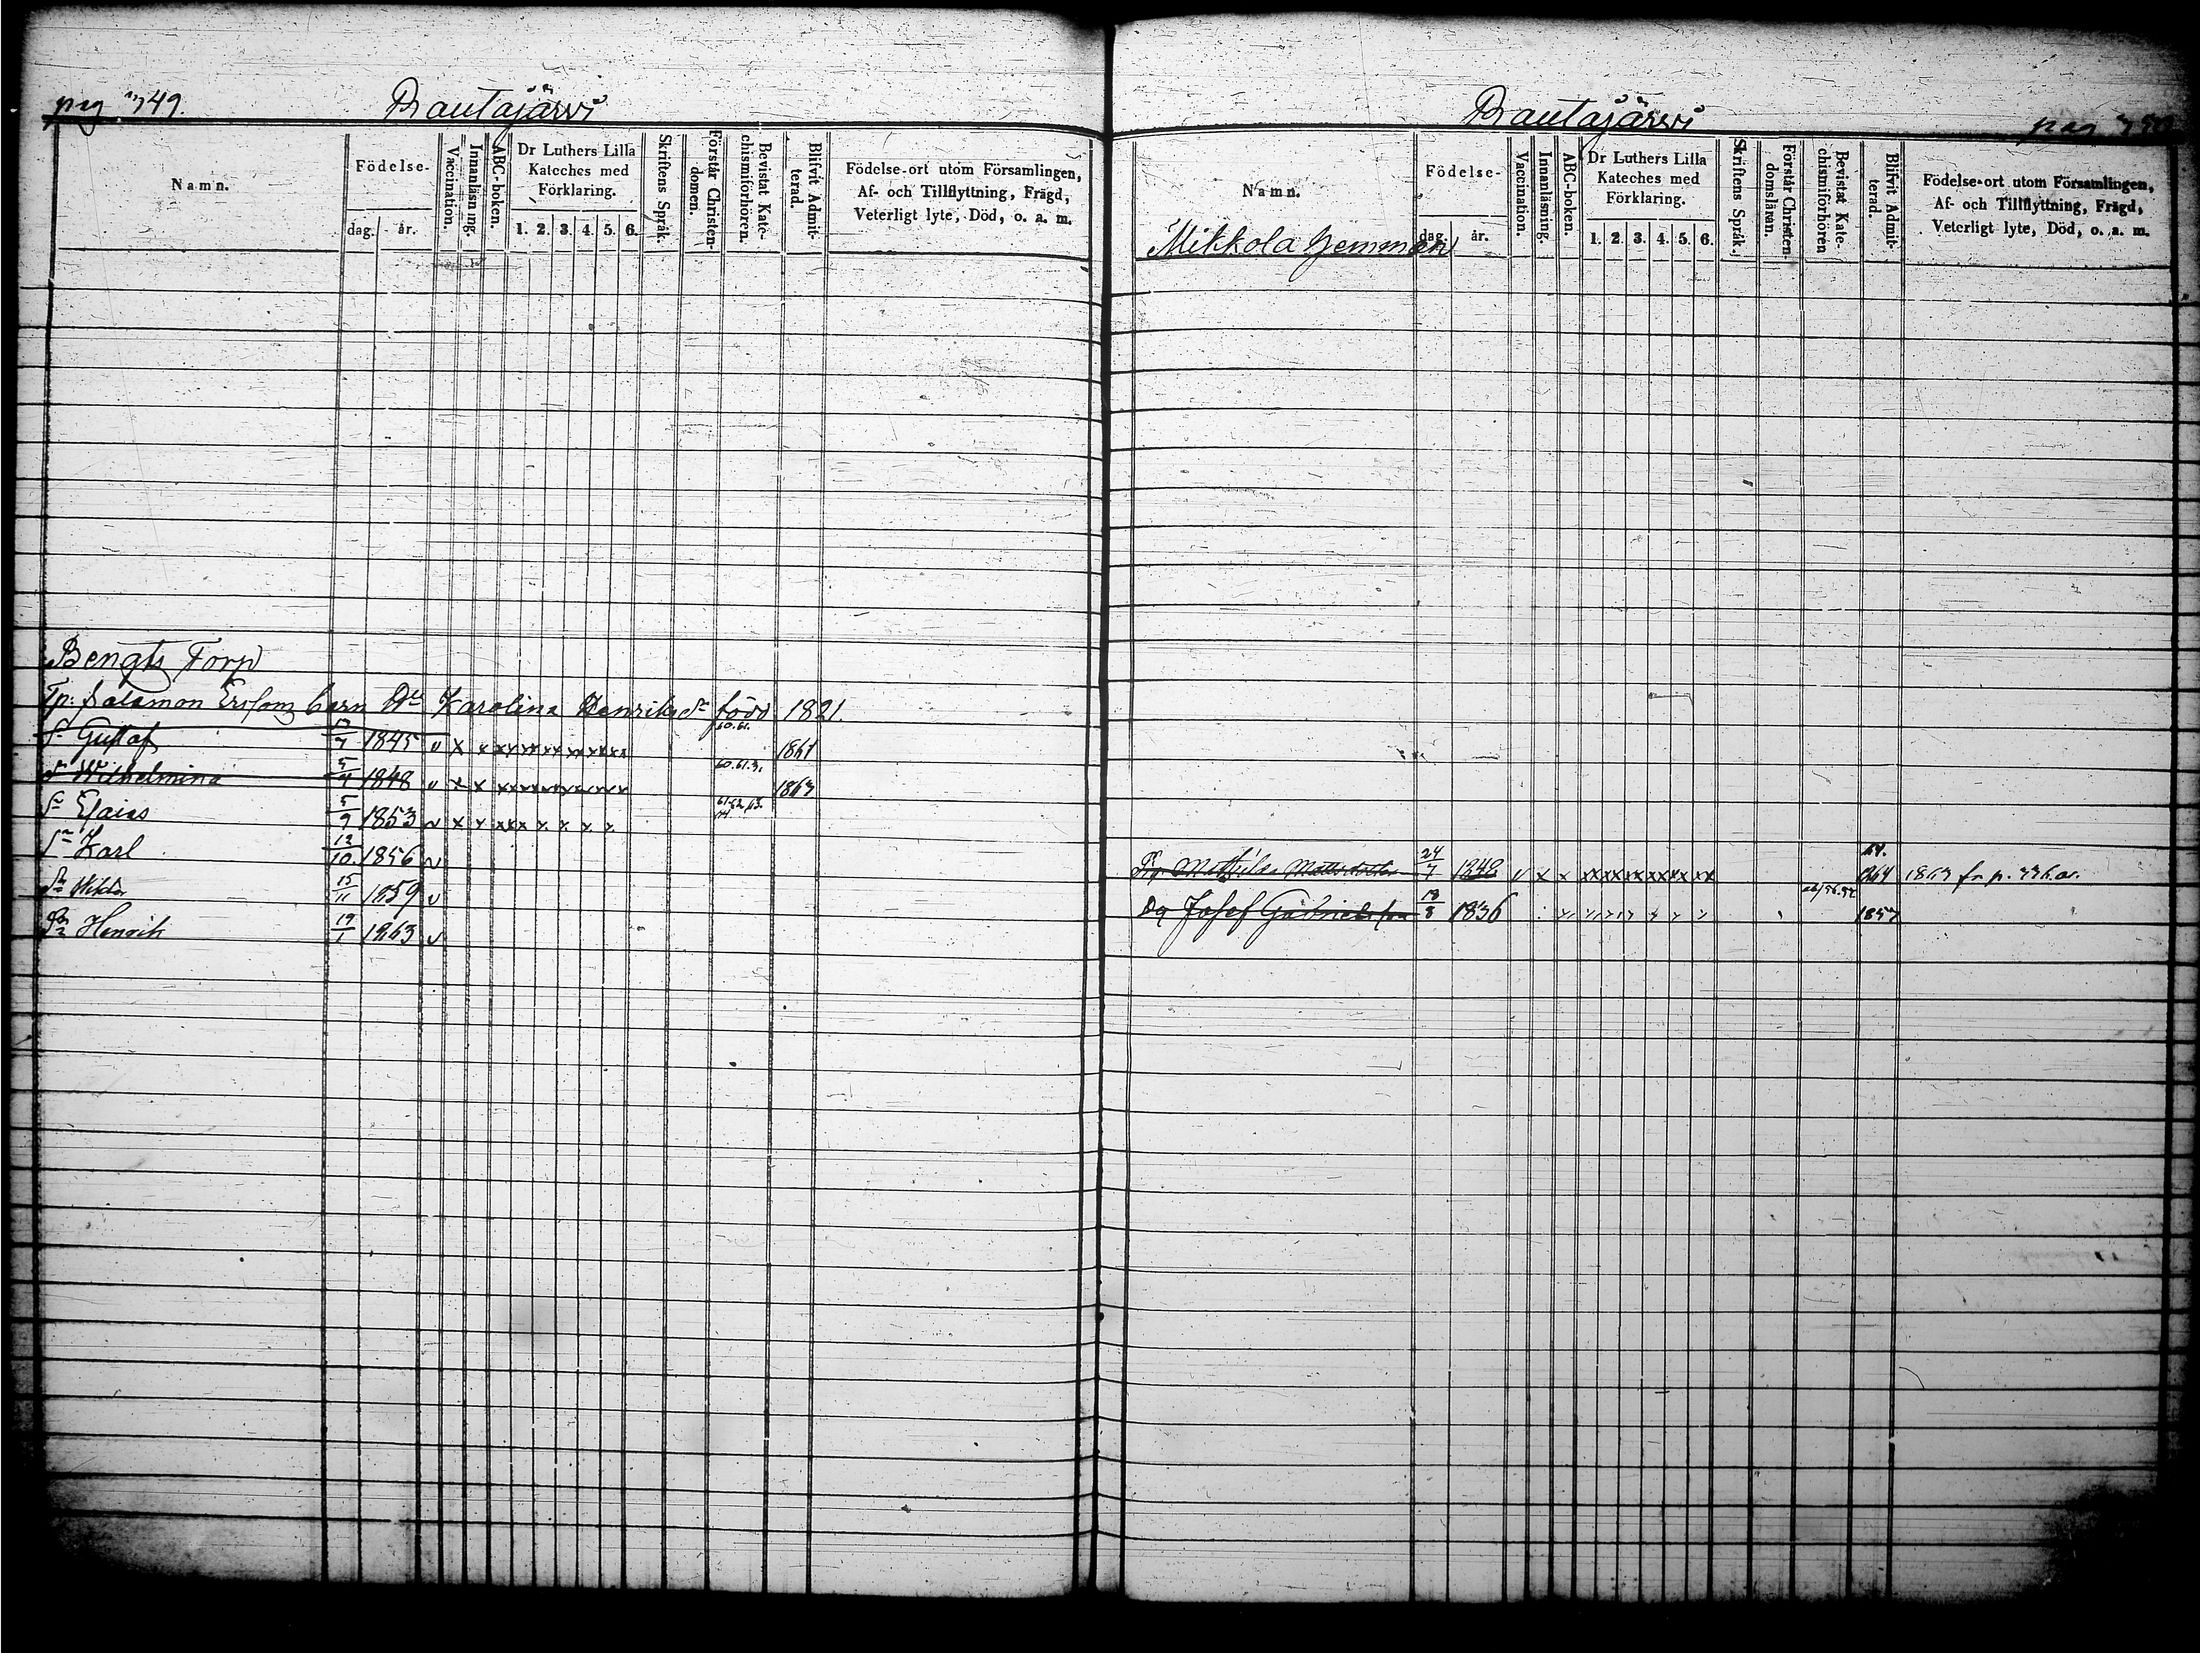 pag 349.
Rautajärvi
Namn.
Födelse-
dag.
år.
Vaccination.
Innanläsning.
ABC-boken.
Dr Luthers Lilla
Kateches med
Förklaring.
1. 2. 3. 4. 5. 6.
Skriftens Språk.
Förstår Christen-
domen.
Bevistat Kate-
chismiförhören.
Blifvit Admit-
terad.
Födelse-ort utom Församlingen,
Af- och Tillflyttning, Frägd,
Veterligt lyte, Död, o. a. m.
Bengts Torp
Tp: Salamon Ersons barn Karolina Henriks född 1821.
60.61.
Sn Gustaf 7 1845 v x x xx xx xx xx xx xx 1861
60.61.3.
Wilhelmina 5/4 1848 v x x xx xx xx xx xx xx 1863
61.62.63.
Sn Esaias 5/9 1853 v x x xx x x x x x
Sn Karl 12/10 1856 v
Sn Viktor 15/11 1859 v
Henrik 19/1 1863 v
Rautajärvi
pag
Namn.
Födelse-
dag.
år.
Vaccination.
Innanläsning.
ABC-boken.
Dr Luthers Lilla
Kateches med
Förklaring.
1. 2. 3. 4. 5. 6.
Skriftens Språk.
Förstår Christen-
domsläran.
Bevistat Kate-
chismiförhören
Blifvit Admit-
terad.
Födelse-ort utom Församlingen,
Af- och Tillflyttning, Frägd,
Veterligt lyte, Död, o. a. m.
Mikkola Hemman
Pig Mathilda Mattsdotter 24/7 1848 v x x xx xx xx xx xx xx 1864 1863 fr p.
Dg Josef Gabrielsson 13/8 1836 1857